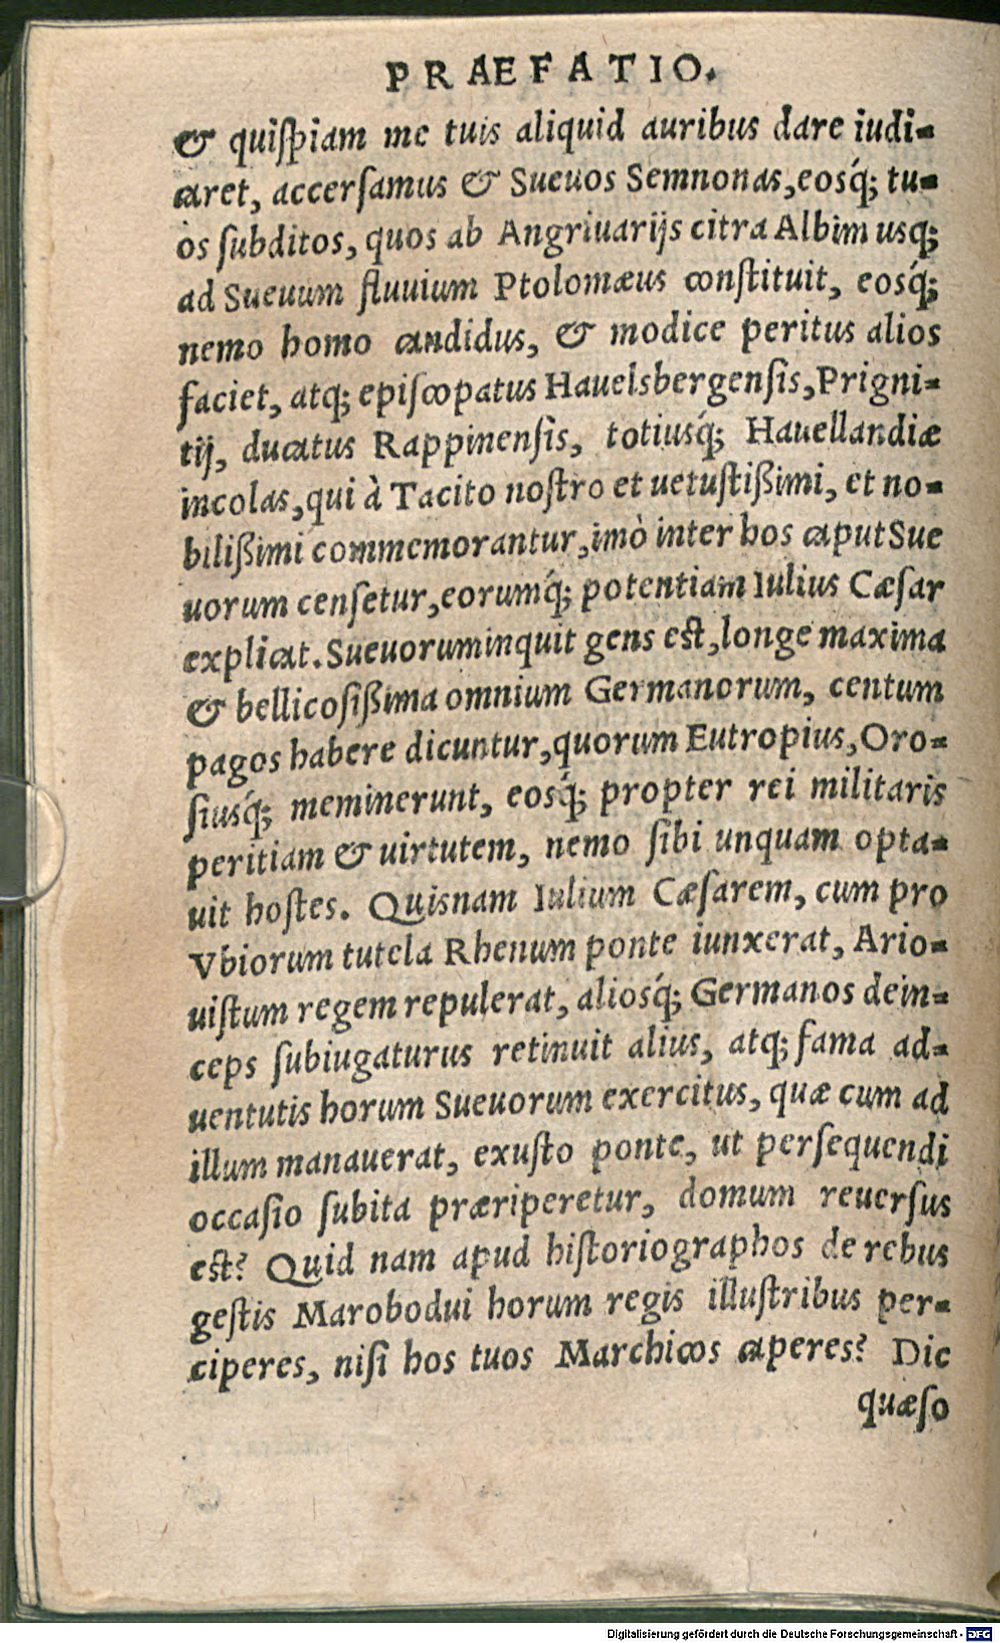 PRAEFATIO.
& quiſpiam me tuis aliquid auribus dare iudi-
caret, accerſamus & Sueuos Semnonas, eosq́; tu-
os ſubditos, quos ab Angriuarijs citra Albim usq;
ad Sueuum fluuium Ptolomæus conſtituit, eosq́;
nemo homo candidus, & modice peritus alios
faciet, atq; epiſcopatus Hauelsbergenſis, Prigni-
tij, ducatus Rappinenſis, totiusq́; Hauellandiæ
incolas, qui à Tacito noſtro et uetuſtißimi, et no-
bilißimi commemorantur, imò inter hos caput Sue
uorum cenſetur, eorumq́; potentiam Iulius Cæſar
explicat. Sueuorum inquit gens eſt, longe maxima
& bellicoſißima omnium Germanorum, centum
pagos habere dicuntur, quorum Eutropius, Oro-
ſiusq́; meminerunt, eosq́; propter rei militaris
peritiam & uirtutem, nemo ſibi unquam opta-
uit hoſtes. Quisnam Iulium Cæſarem, cum pro
Vbiorum tutela Rhenum ponte iunxerat, Ario-
uiſtum regem repulerat, aliosq́; Germanos dein-
ceps ſubiugaturus retinuit alius, atq; fama ad-
uentutis horum Sueuorum exercitus, quæ cum ad
illum manauerat, exuſto ponte, ut perſequendi
occaſio ſubita præriperetur, domum reuerſus
eſt? Quid nam apud hiſtoriographos de rebus
geſtis Marobodui horum regis illuſtribus per-
ciperes, niſi hos tuos Marchicos caperes? Dic
quæſo
Digitalisierung gefördert durch die Deutsche Forschungsgemeinschaft - DFG